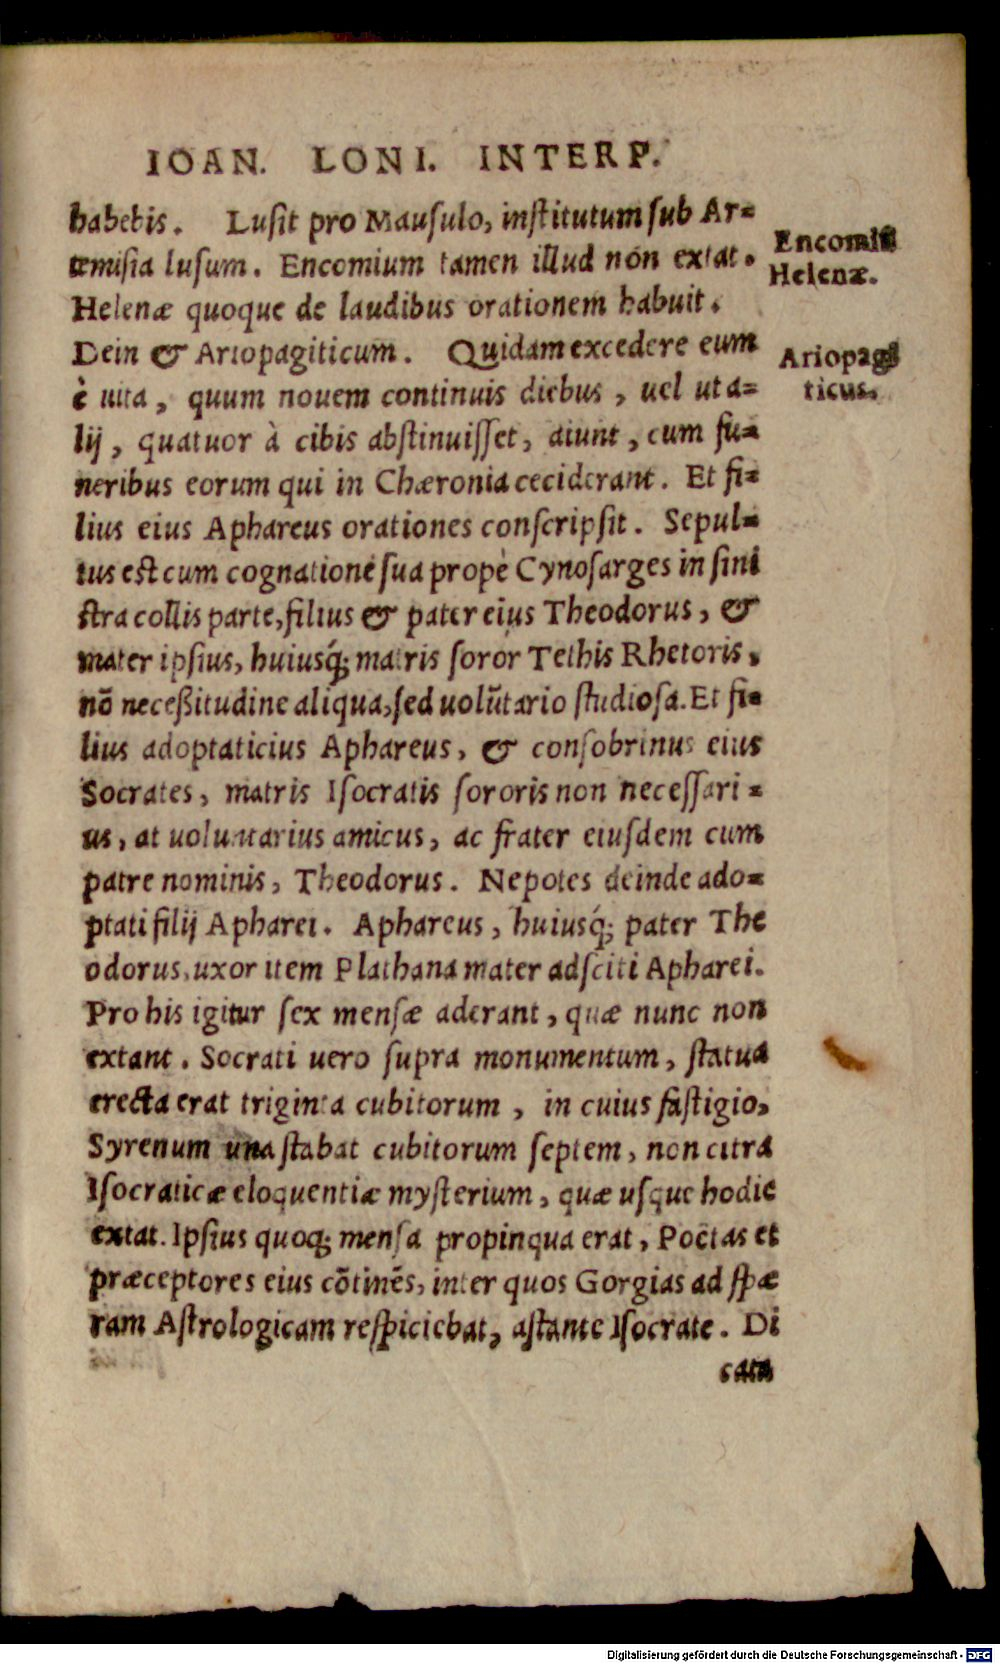 IOAN. LONI. INTERP.
habebis. Lusit pro Mausulo, institutum sub Ar=
temisia lusum. Encomium tamen illud non extat.
Helenæ quoque de laudibus orationem habuit.
Dein & Ariopagiticum. Quidam excedere eum
è uita, quum nouem continuis diebus, uel ut a=
lij, quatuor à cibis abstinuisset, aiunt, cum fu=
neribus eorum qui in Chæronia ceciderant. Et fi=
lius eius Aphareus orationes conscripsit. Sepul=
tus est cum cognatione sua propè Cynosarges in sini
stra collis parte, filius & pater eius Theodorus, &
mater ipsius, huiusq́; matris soror Tethis Rhetoris,
nō neceßitudine aliqua, sed uolūtario studiosa. Et fi=
lius adoptaticius Aphareus, & consobrinus eius
Socrates, matris Isocratis sororis non necessari=
us, at uoluntarius amicus, ac frater eiusdem cum
patre nominis, Theodorus. Nepotes deinde ado=
ptati filij Apharei. Aphareus, huiusq́; pater The
odorus, uxor item Plathana mater adsciti Apharei.
Pro his igitur sex mensæ aderant, quæ nunc non
extant. Socrati uero supra monumentum, statua
erecta erat triginta cubitorum, in cuius fastigio,
Syrenum una stabat cubitorum septem, non citra
Isocraticæ eloquentiæ mysterium, quæ usque hodie
extat. Ipsius quoq; mensa propinqua erat, Poëtas et
præceptores eius cōtinēs, inter quos Gorgias ad spæ
ram Astrologicam respiciebat, astante Isocrate. Di
cata
Encomiū
Helenæ.
Ariopagi
ticus.
Digitalisierung gefördert durch die Deutsche Forschungsgemeinschaft - DFG